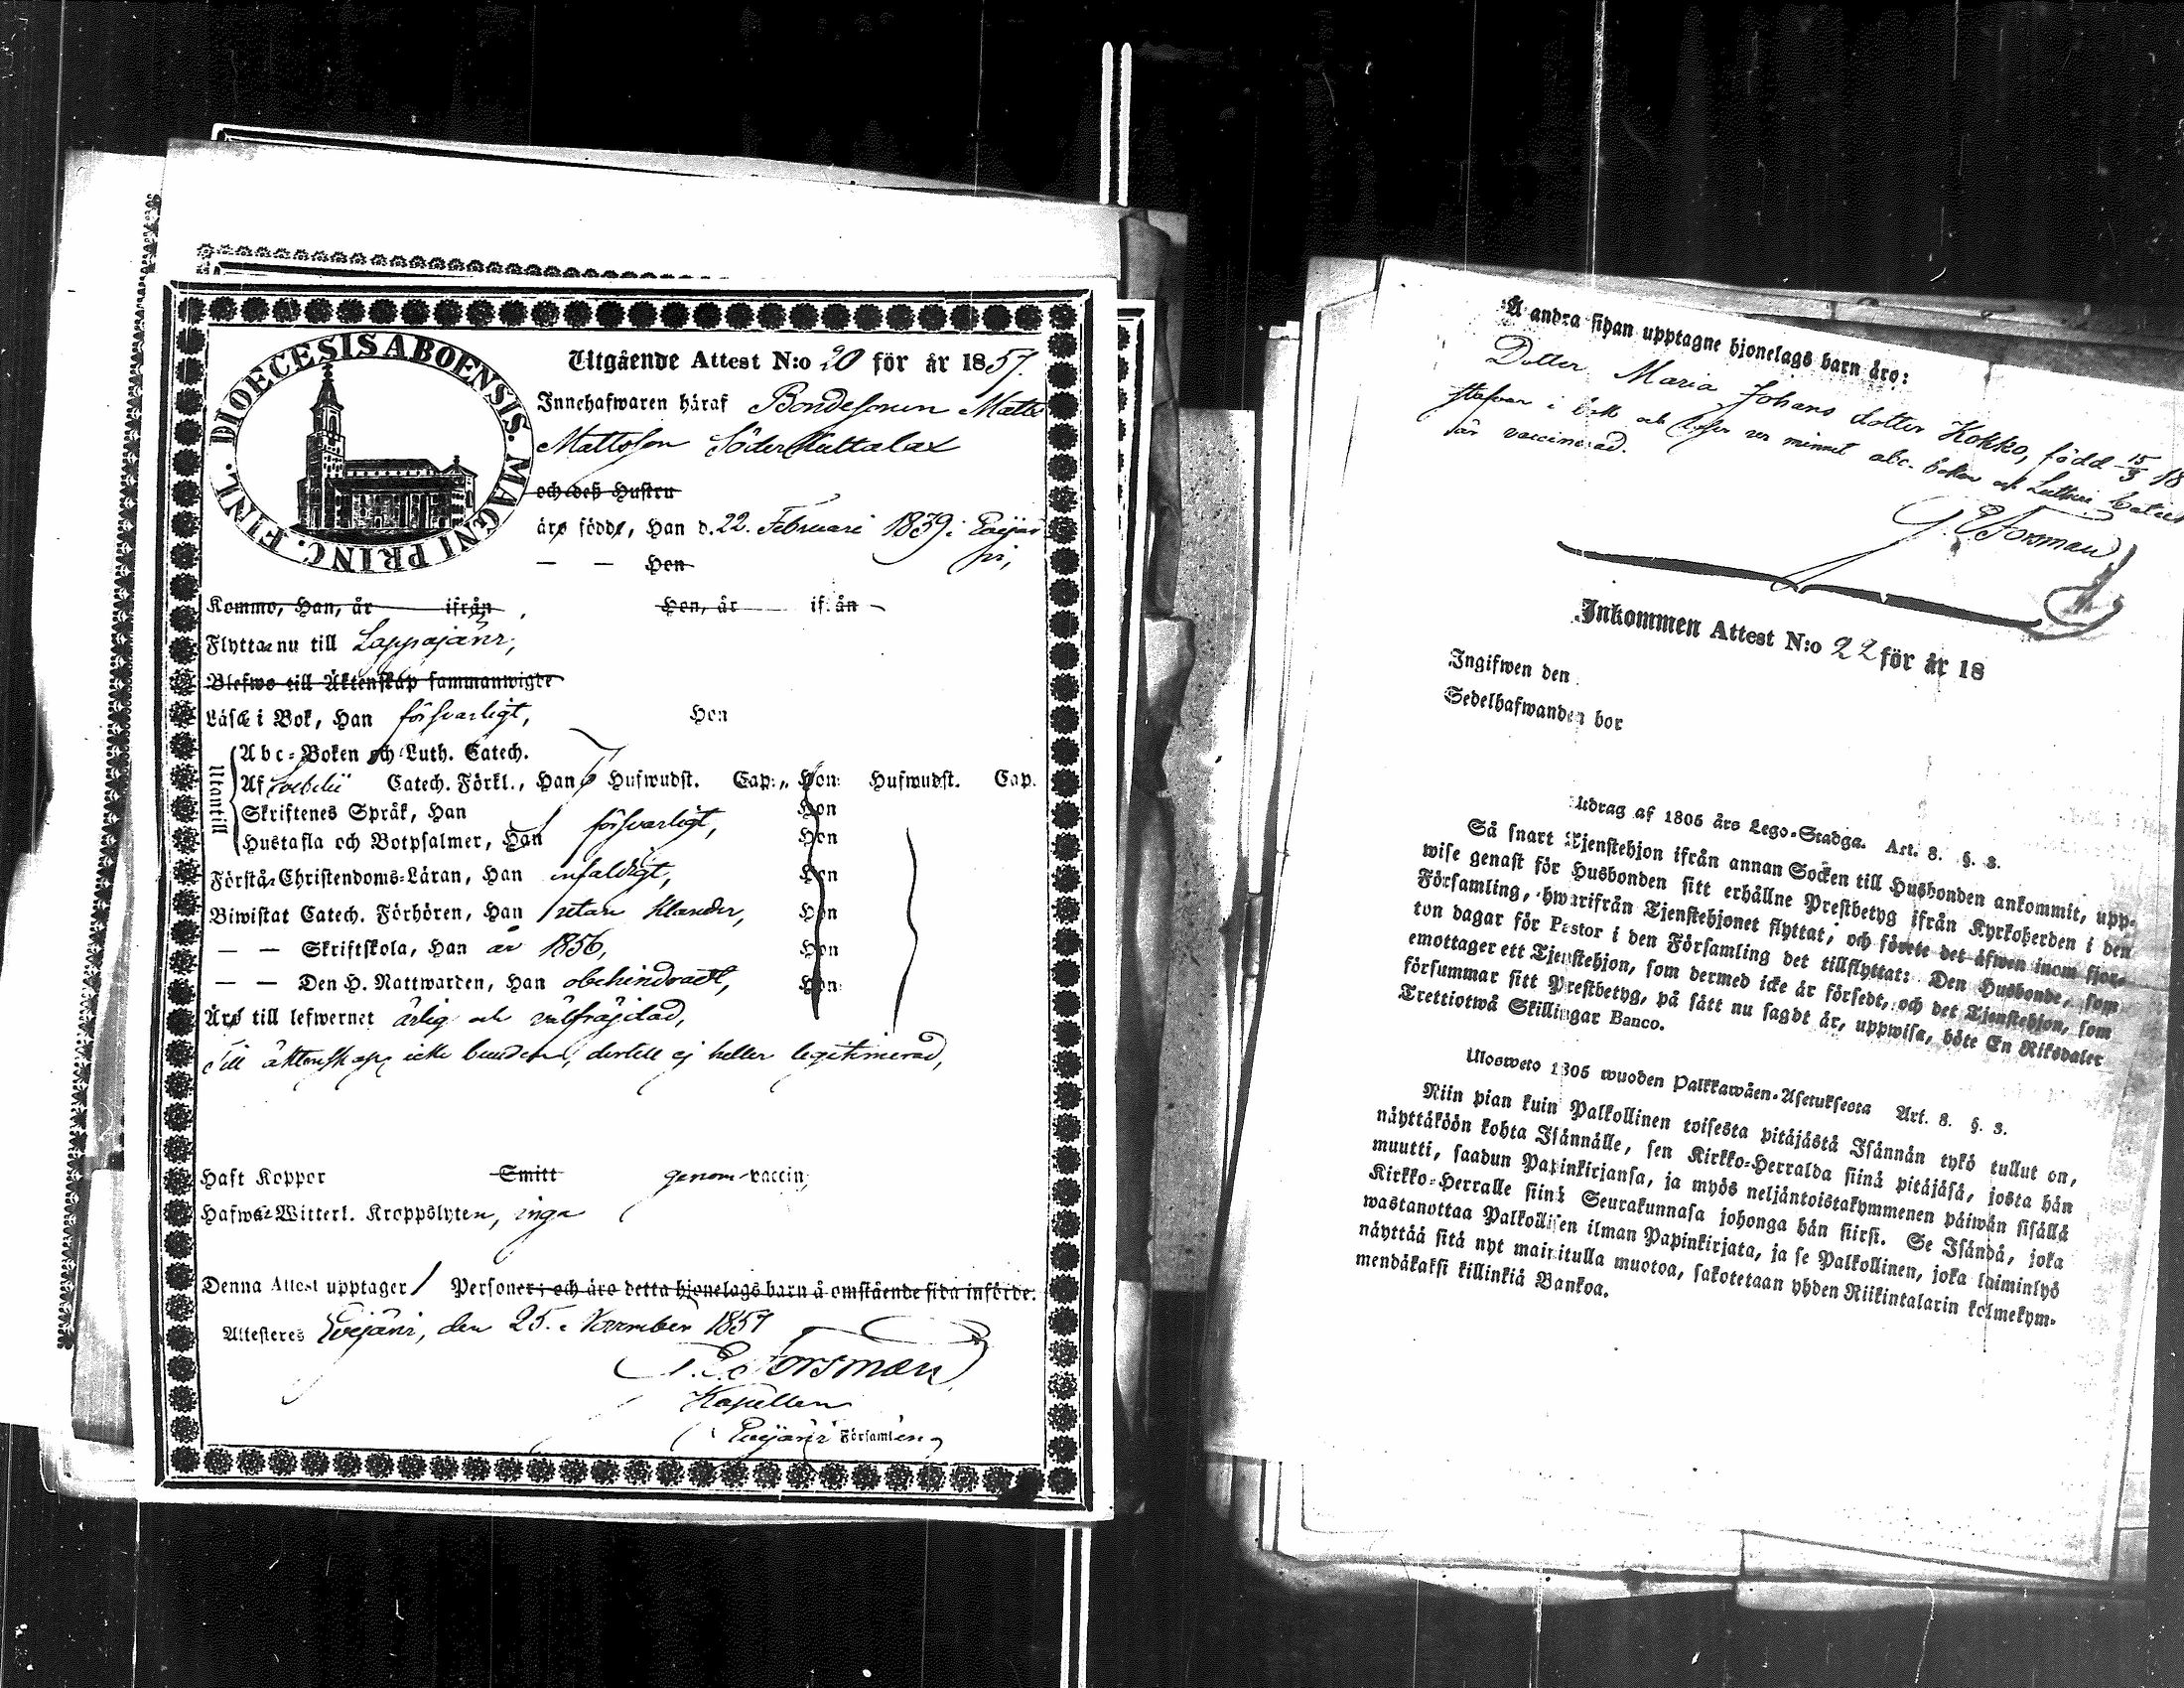 DIOECESIS ABOENSIS. MAGNI PRINC. FINL.
Utgående Attest N:o 20 för år 1857
Innehafwaren häraf Bondesonen Matts
Mattsson Söder
och deß Hustru
äro födde, Han d. 22. Februari 1839 i Evijär
vi,
— — Hon
Kommo, Han, år ifrån Hon, år ifrån
Flyttar nu till Lappajärvi,
Blefwo till Äktenskap sammanwigde
Läser i Bok, Han försvarligt, Hon
Utantill
Abc-Boken och Luth. Catech.
Af Svebelii Catech. Förkl., Han 6 Hufwudst. Cap., Hon Hufwudst. Cap.
Skriftenes Språk, Han Hon
försvarligt,
Hustafla och Botpsalmer, Han Hon
Förstår Christendoms-Läran, Han enfaldigt, Hon
Biwistat Catech. Förhören, Han utan klander, Hon
— — Skriftskola, Han år 1856, Hon
— — Den H. Nattwarden, Han obehindradt, Hon
Äro till lefwernet ärlig och välfräjdad,
Till äktenskap icke bunden, dertill ej heller legitimerad,
Haft Koppor Smitt genom vaccin,
Hafwa Witterl. Kroppslyten, inga
Denna Attest upptager 1 Personer; och äro detta hjonelags barn å omstående sida införde.
Attesteres Evijärvi, den 25. November 1857
Forsman
Kapellan
i Evijärvi Församling
Å andra sidan upptagne hjonelags barn äro:
Dotter Maria Johans dotter Kokko, född 15/3 18
i bok och läser ur minnet abc-boken och Lutheri
är vaccinerad.
Forsman
Inkommen Attest N:o 22 för år 18
Ingifwen den
Sedelhafwanden bor
Utdrag af 1805 års Lego-Stadga. Art. 8. §. 3.
Så snart Tjenstehjon ifrån annan Socken till Husbonden ankommit, upp-
wise genast för Husbonden sitt erhållne Prestbetyg ifrån Kyrkoherden i den
Församling, hwarifrån Tjenstehjonet flyttat; och förete det äfwen inom fjor-
ton dagar för Pastor i den Församling det tillflyttat: Den Husbonde, som
emottager ett Tjenstehjon, som dermed icke är försedt, och det Tjenstehjon, som
försummar sitt Prestbetyg, på sätt nu sagdt är, uppwisa, böte En Riksdaler
Trettiotwå Skillingar Banco.
Ulosweto 1805 wuoden Palkkawäen-Asetuksesta Art. 8. §. 3.
Niin pian kuin Palkollinen toisesta pitäjästä Isännän tykö tullut on,
näyttäköön kohta Isännälle, sen Kirkko-Herralda siinä pitäjäsä, josta hän
muutti, saadun Papinkirjansa, ja myös neljäntoistakymmenen päiwän sisällä
Kirkko-Herralle siinä Seurakunnasa johonga hän siirsi. Se Isändä, joka
wastanottaa Palkollisen ilman Papinkirjata, ja se Palkollinen, joka laiminlyö
näyttää sitä nyt mainitulla muotoa, sakotetaan yhden Riikintalarin kolmekym-
mendäkaksi killinkiä Bankoa.